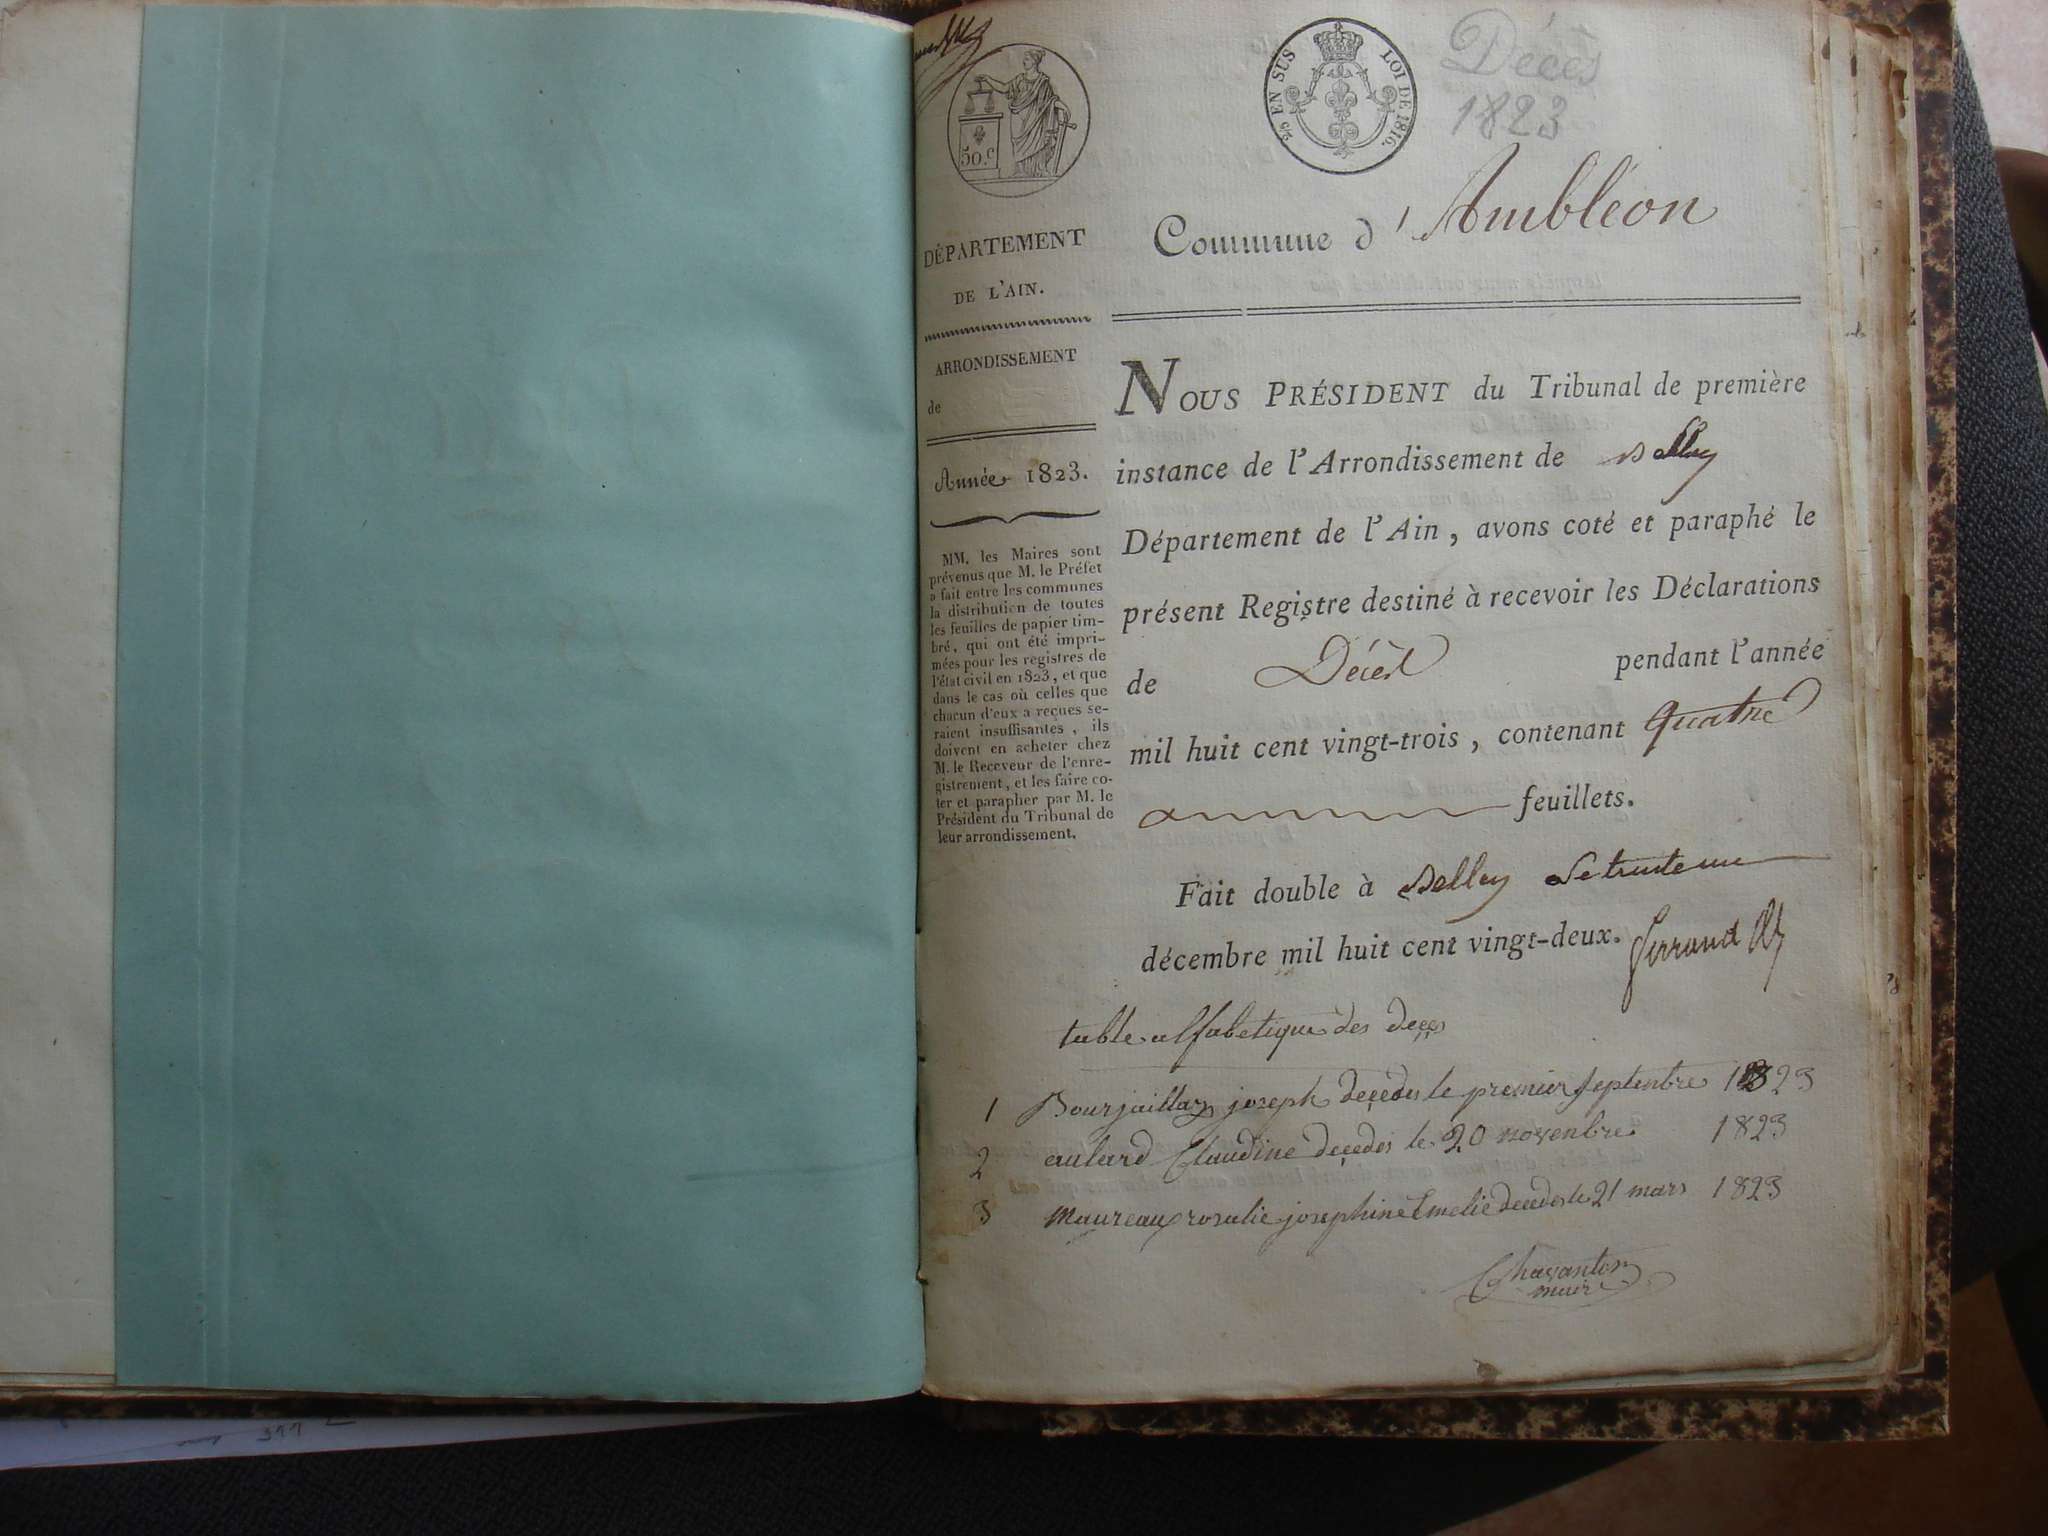 50.c
2/5 EN SUS LOI DE 1816.
Décès
1823
Commune d'Ambléon
DÉPARTEMENT
DE L'AIN.
ARRONDISSEMENT
de
Année 1823.
MM. les Maires sont
prévenus que M. le Préfet
a fait entre les communes
la distribution de toutes
les feuilles de papier tim-
bré, qui ont été impri-
mées pour les registres de
l'état civil en 1823, et que
dans le cas où celles que
chacun d'eux a reçues se-
raient insuffisantes, ils
doivent en acheter chez
M. le Receveur de l'enre-
gistrement, et les faire co-
ter et parapher par M. le
Président du Tribunal de
leur arrondissement.
NOUS PRÉSIDENT du Tribunal de première
instance de l'Arrondissement de Belley
Département de l'Ain, avons coté et paraphé le
présent Registre destiné à recevoir les Déclarations
de Décès pendant l'année
mil huit cent vingt-trois, contenant quatre
feuillets.
Fait double à Belley Le trente un
décembre mil huit cent vingt-deux.
table alfabetique des deces
1 Bourjaillar joseph decedes le premier septenbre 1823
2 aulard Claudine decedes le 20 novenbre 1823
3 maureau rosalie josephine Emelie decedes le 21 mars 1823
Chavanton
maire